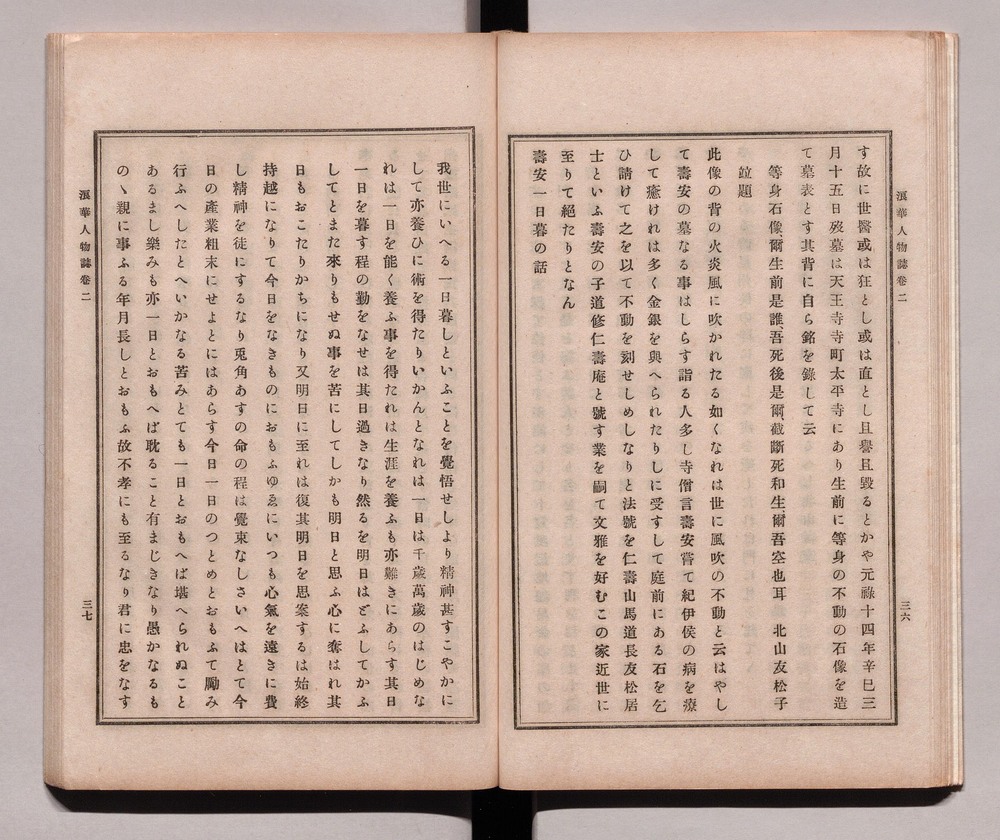 浪華人物誌卷二
三六
す故に世醫或は狂とし或は直とし且譽且毀るとかや元祿十四年辛巳三
月十五日歿墓は天王寺寺町太平寺にあり生前に等身の不動の石像を造
て墓表とす其背に自ら銘を錄して云
等身石像、爾生前是誰、吾死後是爾、截斷死和生、爾吾空也耳、北山友松子
竝題
此像の背の火炎風に吹かれたる如くなれは世に風吹の不動と云はやし
て壽安の墓なる事はしらす詣る人多し寺僧言壽安嘗て紀伊侯の病を療
して癒けれは多く金銀を與へられたりしに受すして庭前にある石を乞
ひ請けて之を以て不動を刻せしめしなりと法號を仁壽山馬道長友松居
士といふ壽安の子道修仁壽庵と號す業を嗣て文雅を好むこの家近世に
至りて絕たりとなん
壽安一日暮の話
我世にいへる一日暮しといふことを覺悟せしより精神甚すこやかに
して亦養ひに術を得たりいかんとなれは一日は千歲萬歲のはじめな
れは一日を能く養ふ事を得たれは生涯を養ふも亦難きにあらす其日
一日を暮す程の勤をなせは其日過きなり然るを明日はどふしてかふ
してとまた來りもせぬ事を苦にしてしかも明日と思ふ心に奪はれ其
日もおこたりかちになり又明日に至れは復其明日を思案するは始終
持越になりて今日をなきものにおもふゆゑにいつも心氣を遠きに費
し精神を徒にするなり兎角あすの命の程は覺束なしさいへはとて今
日の產業粗末にせよとにはあらす今日一日のつとめとおもふて勵み
行ふへしたとへいかなる苦みとても一日とおもへば堪へられぬこと
あるまし樂みも亦一日とおもへば耽ること有まじきなり愚かなるも
のゝ親に事ふる年月長しとおもふ故不孝にも至るなり君に忠をなす
浪華人物誌卷二
三七